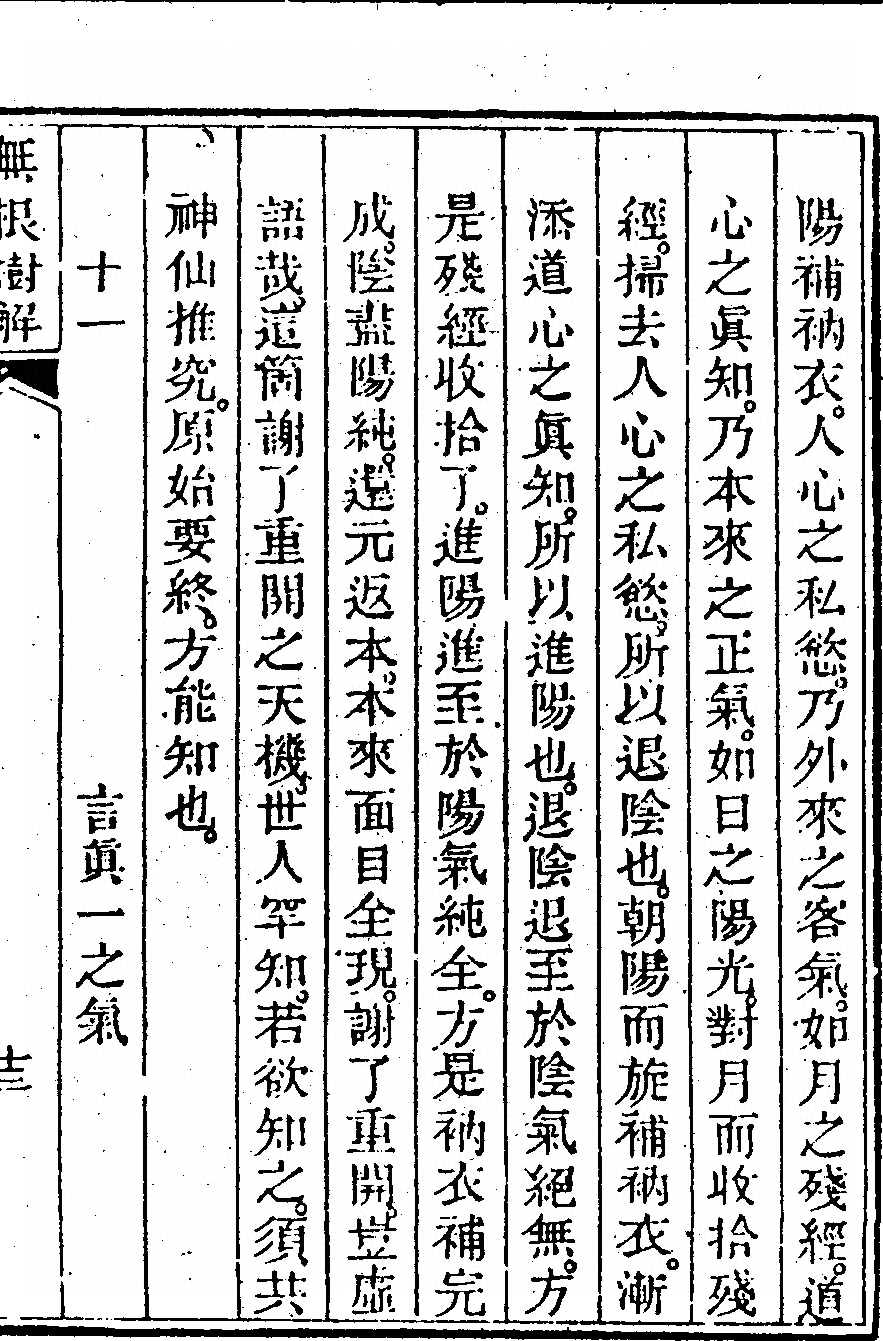 陽補衲衣。人心之私慾。乃外來之客氣。如月之殘經。道
心之眞知。乃本來之正氣。如日之陽光。對月而收拾殘
經。掃去人心之私慾。所以退陰也。朝陽而旋補衲衣。漸
添道心之眞知。所以進陽也。退陰退至於陰氣絕無。方
是殘經收拾了。進陽進至於陽氣純全。方是衲衣補完
成。陰盡陽純。還元返本。本來面目全現。謝了重開。豈虛
語哉。這箇謝了重開之天機。世人罕知。若欲知之。須共
神仙推究。原始要終。方能知也。
十一　言眞一之氣
無根樹解　十三